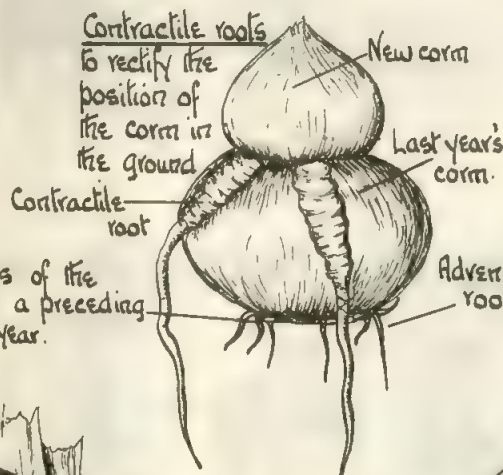 Contractile roots
to rectify the
position of
the corm in
the ground
New corm
Last year's
corm.
Contractile
root
of the
a preceding
year.